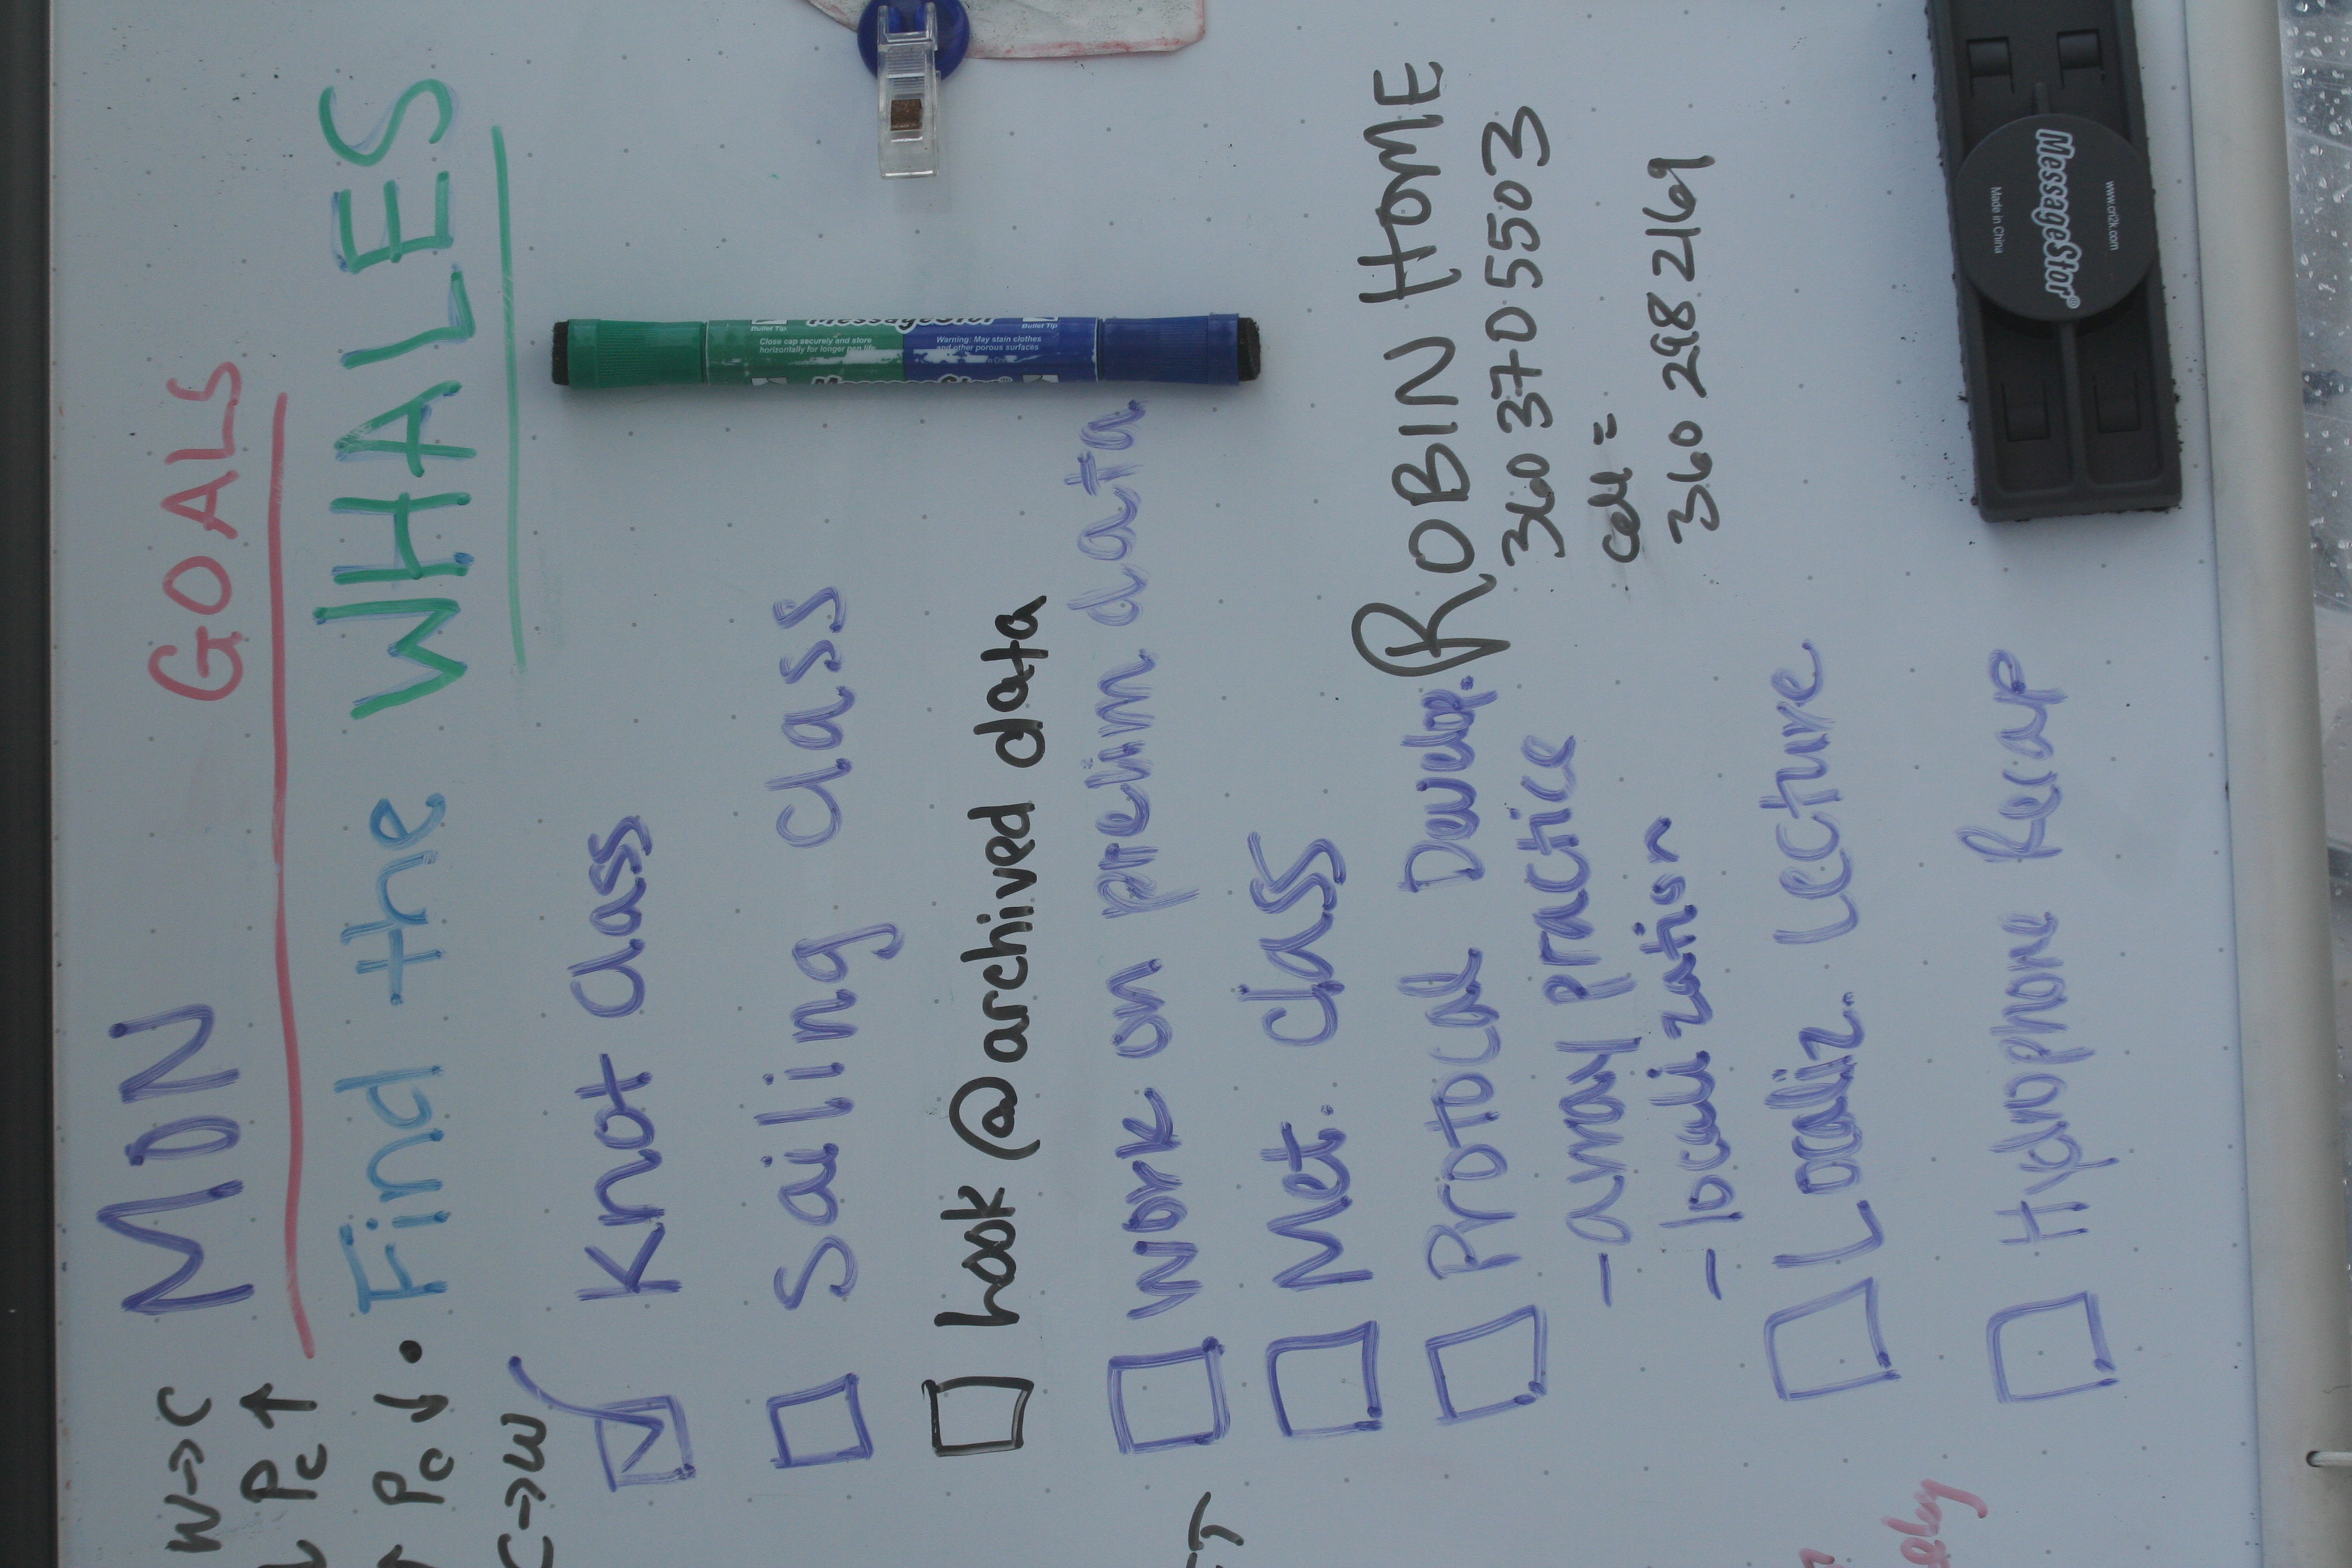 MON GOALS
Find the WHALES
Knot class
Sailing class
look @ archived data
work on prelim data
Met. class
Protocal Develop.
- array practice
- localization
Localiz. Lecture
Hydrophone Recap
ROBIN HOME
360 370 5503
cell =
360 298 2169
W→C
Pc ↑
Pc ↓
C→W
MessageStor
Bullet Tip
Close cap securely and store
horizontally for longer pen life
Warning: May stain clothes
and other porous surfaces
Bullet Tip
www.cri2k.com
MessageStor®
Made in China